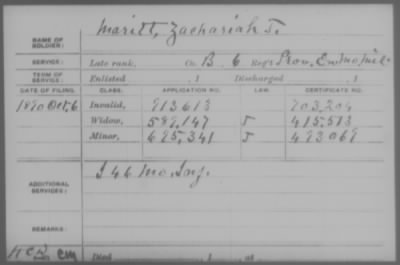 Maritt, Zachariah T.
NAME OF SOLDIER:
SERVICE: Late rank, Co. B. 6 Reg't Prov. En. Mo. Mil.
TERM OF SERVICE: Enlisted , 1 Discharged , 1
DATE OF FILING. CLASS. APPLICATION NO. LAW. CERTIFICATE NO.
1890 Oct. 6 Invalid, 913613 703,204
Widow, 589,147 5 415,513
Minor, 695,341 5 493069
ADDITIONAL SERVICES: I 46 Mo. Inf.
REMARKS:
Died , 1 , at